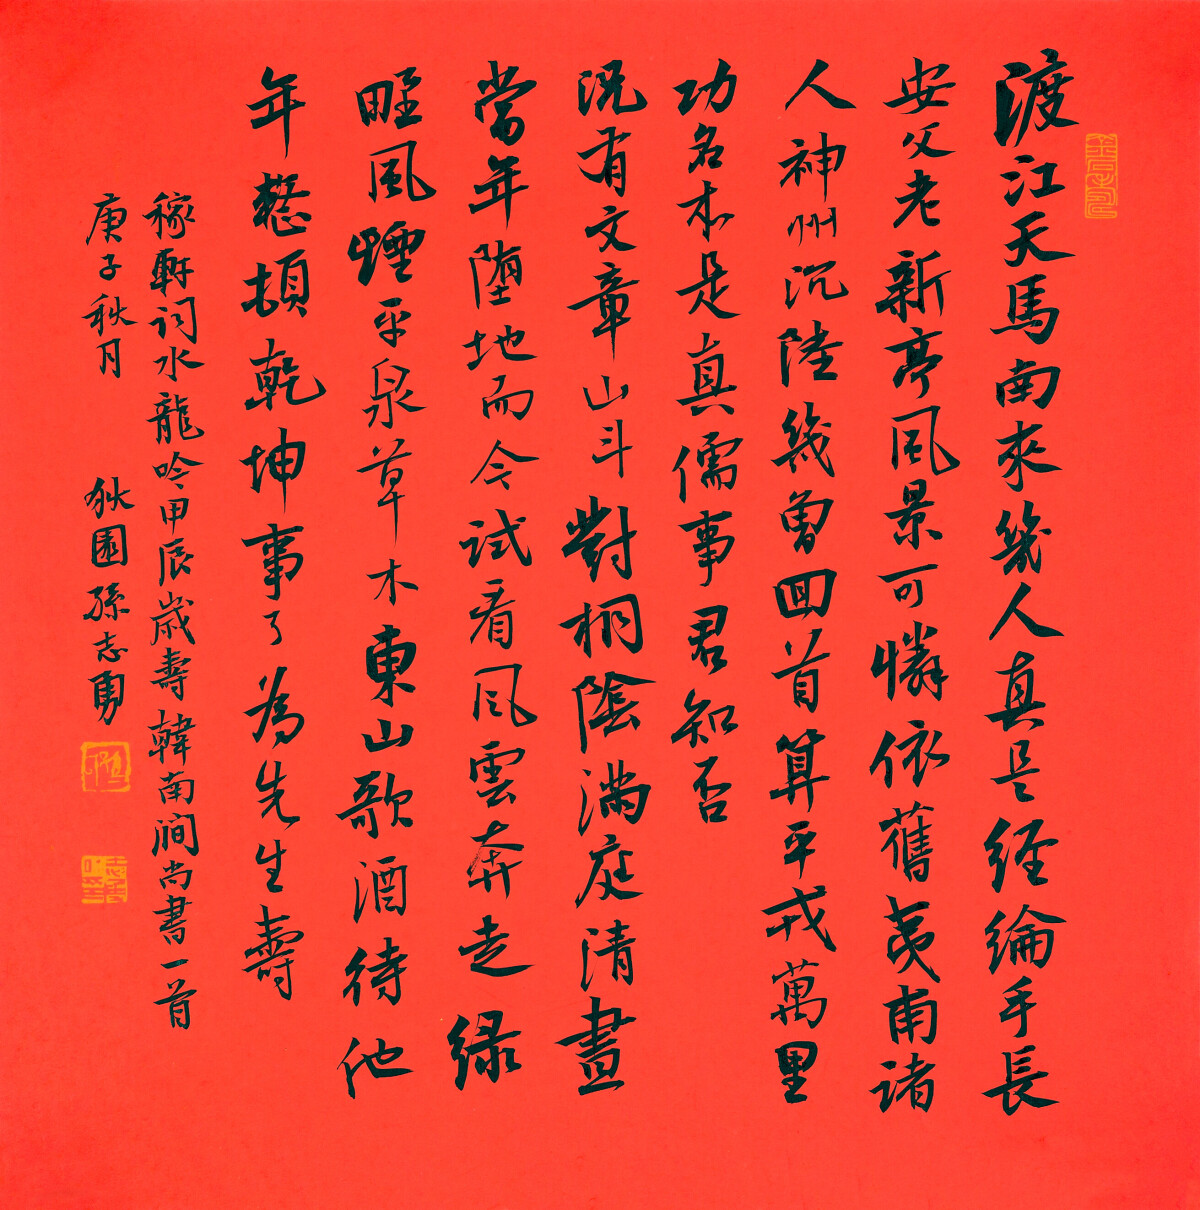 渡江天馬南來幾人真是經綸手長
安父老新亭風景可憐依舊夷甫諸
人神州沉陸幾曾回首算平戎萬里
功名本是真儒事君知否
況有文章山斗對桐陰滿庭清晝
當年墮地而今試看風雲奔走綠
野風煙平泉草木東山歌酒待他
年整頓乾坤事了為先生壽
稼軒詞水龍吟甲辰歲壽韓南澗尚書一首
庚子秋月 狄園孫志勇